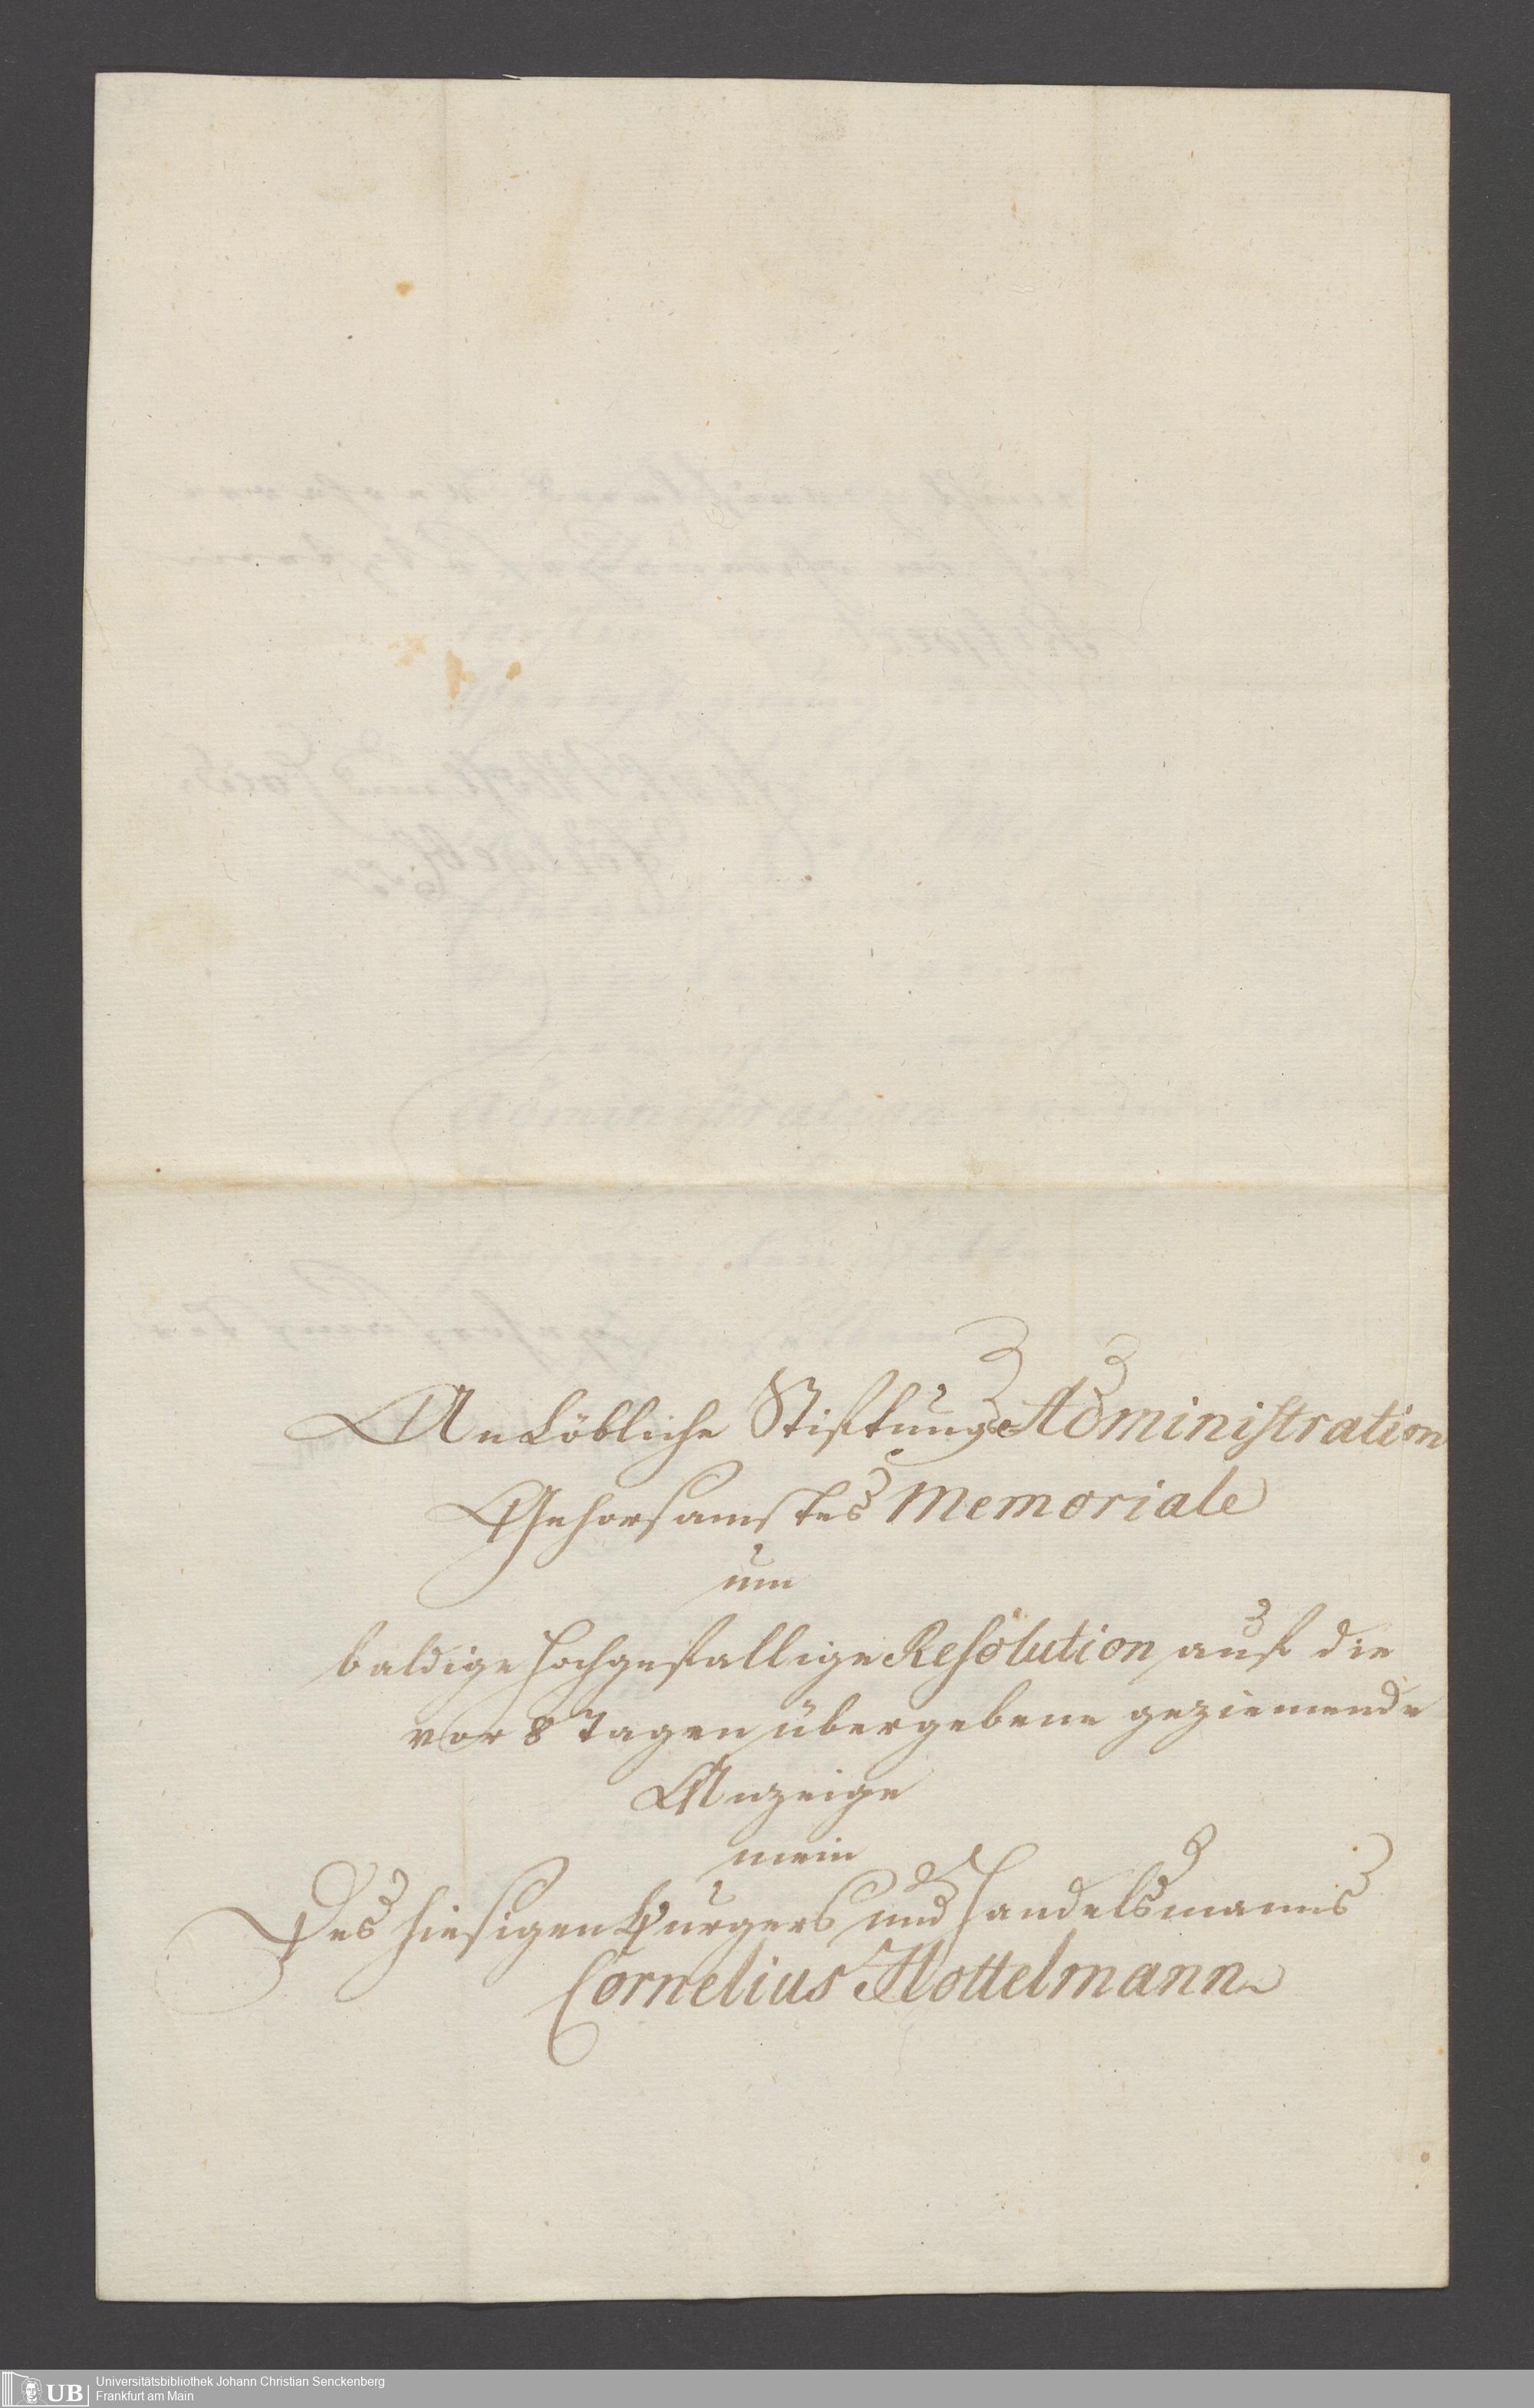 An Löbliche Stiftungs Administration
Gehorsamstes Memoriale
um
baldige hochgefallige Resolution auf die
vor 8 Tagen übergebene geziemende
Anzeige
mein
Des hiesigen Burgers und Handelsmanns
Cornelius Hottelmann
UB
Universitätsbibliothek Johann Christian Senckenberg
Frankfurt am Main